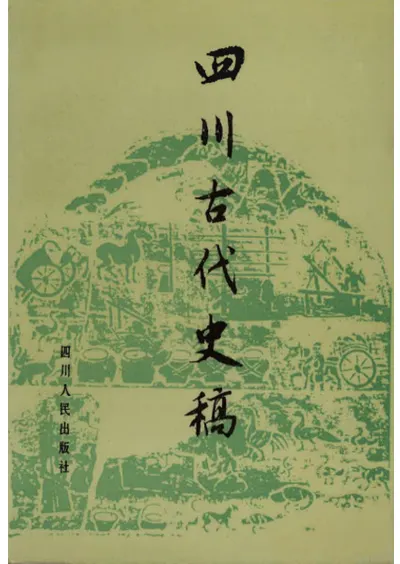 四川古代史稿
四川人民出版社